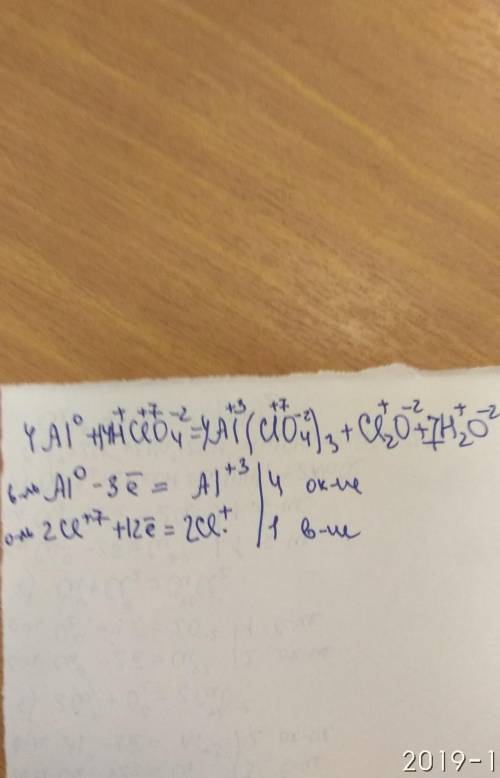 4Al⁰ + 14H⁺Cl⁺⁷O₄⁻² = 4Al⁺³(Cl⁺⁷O₄⁻²)₃ + Cl₂⁺O⁻² + 7H₂⁺O⁻²
в-ль Al⁰ - 3ē = Al⁺³ | 4 ок-ие
о-ль 2Cl⁺⁷ + 12ē = 2Cl⁺ | 1 в-ие
2019-1